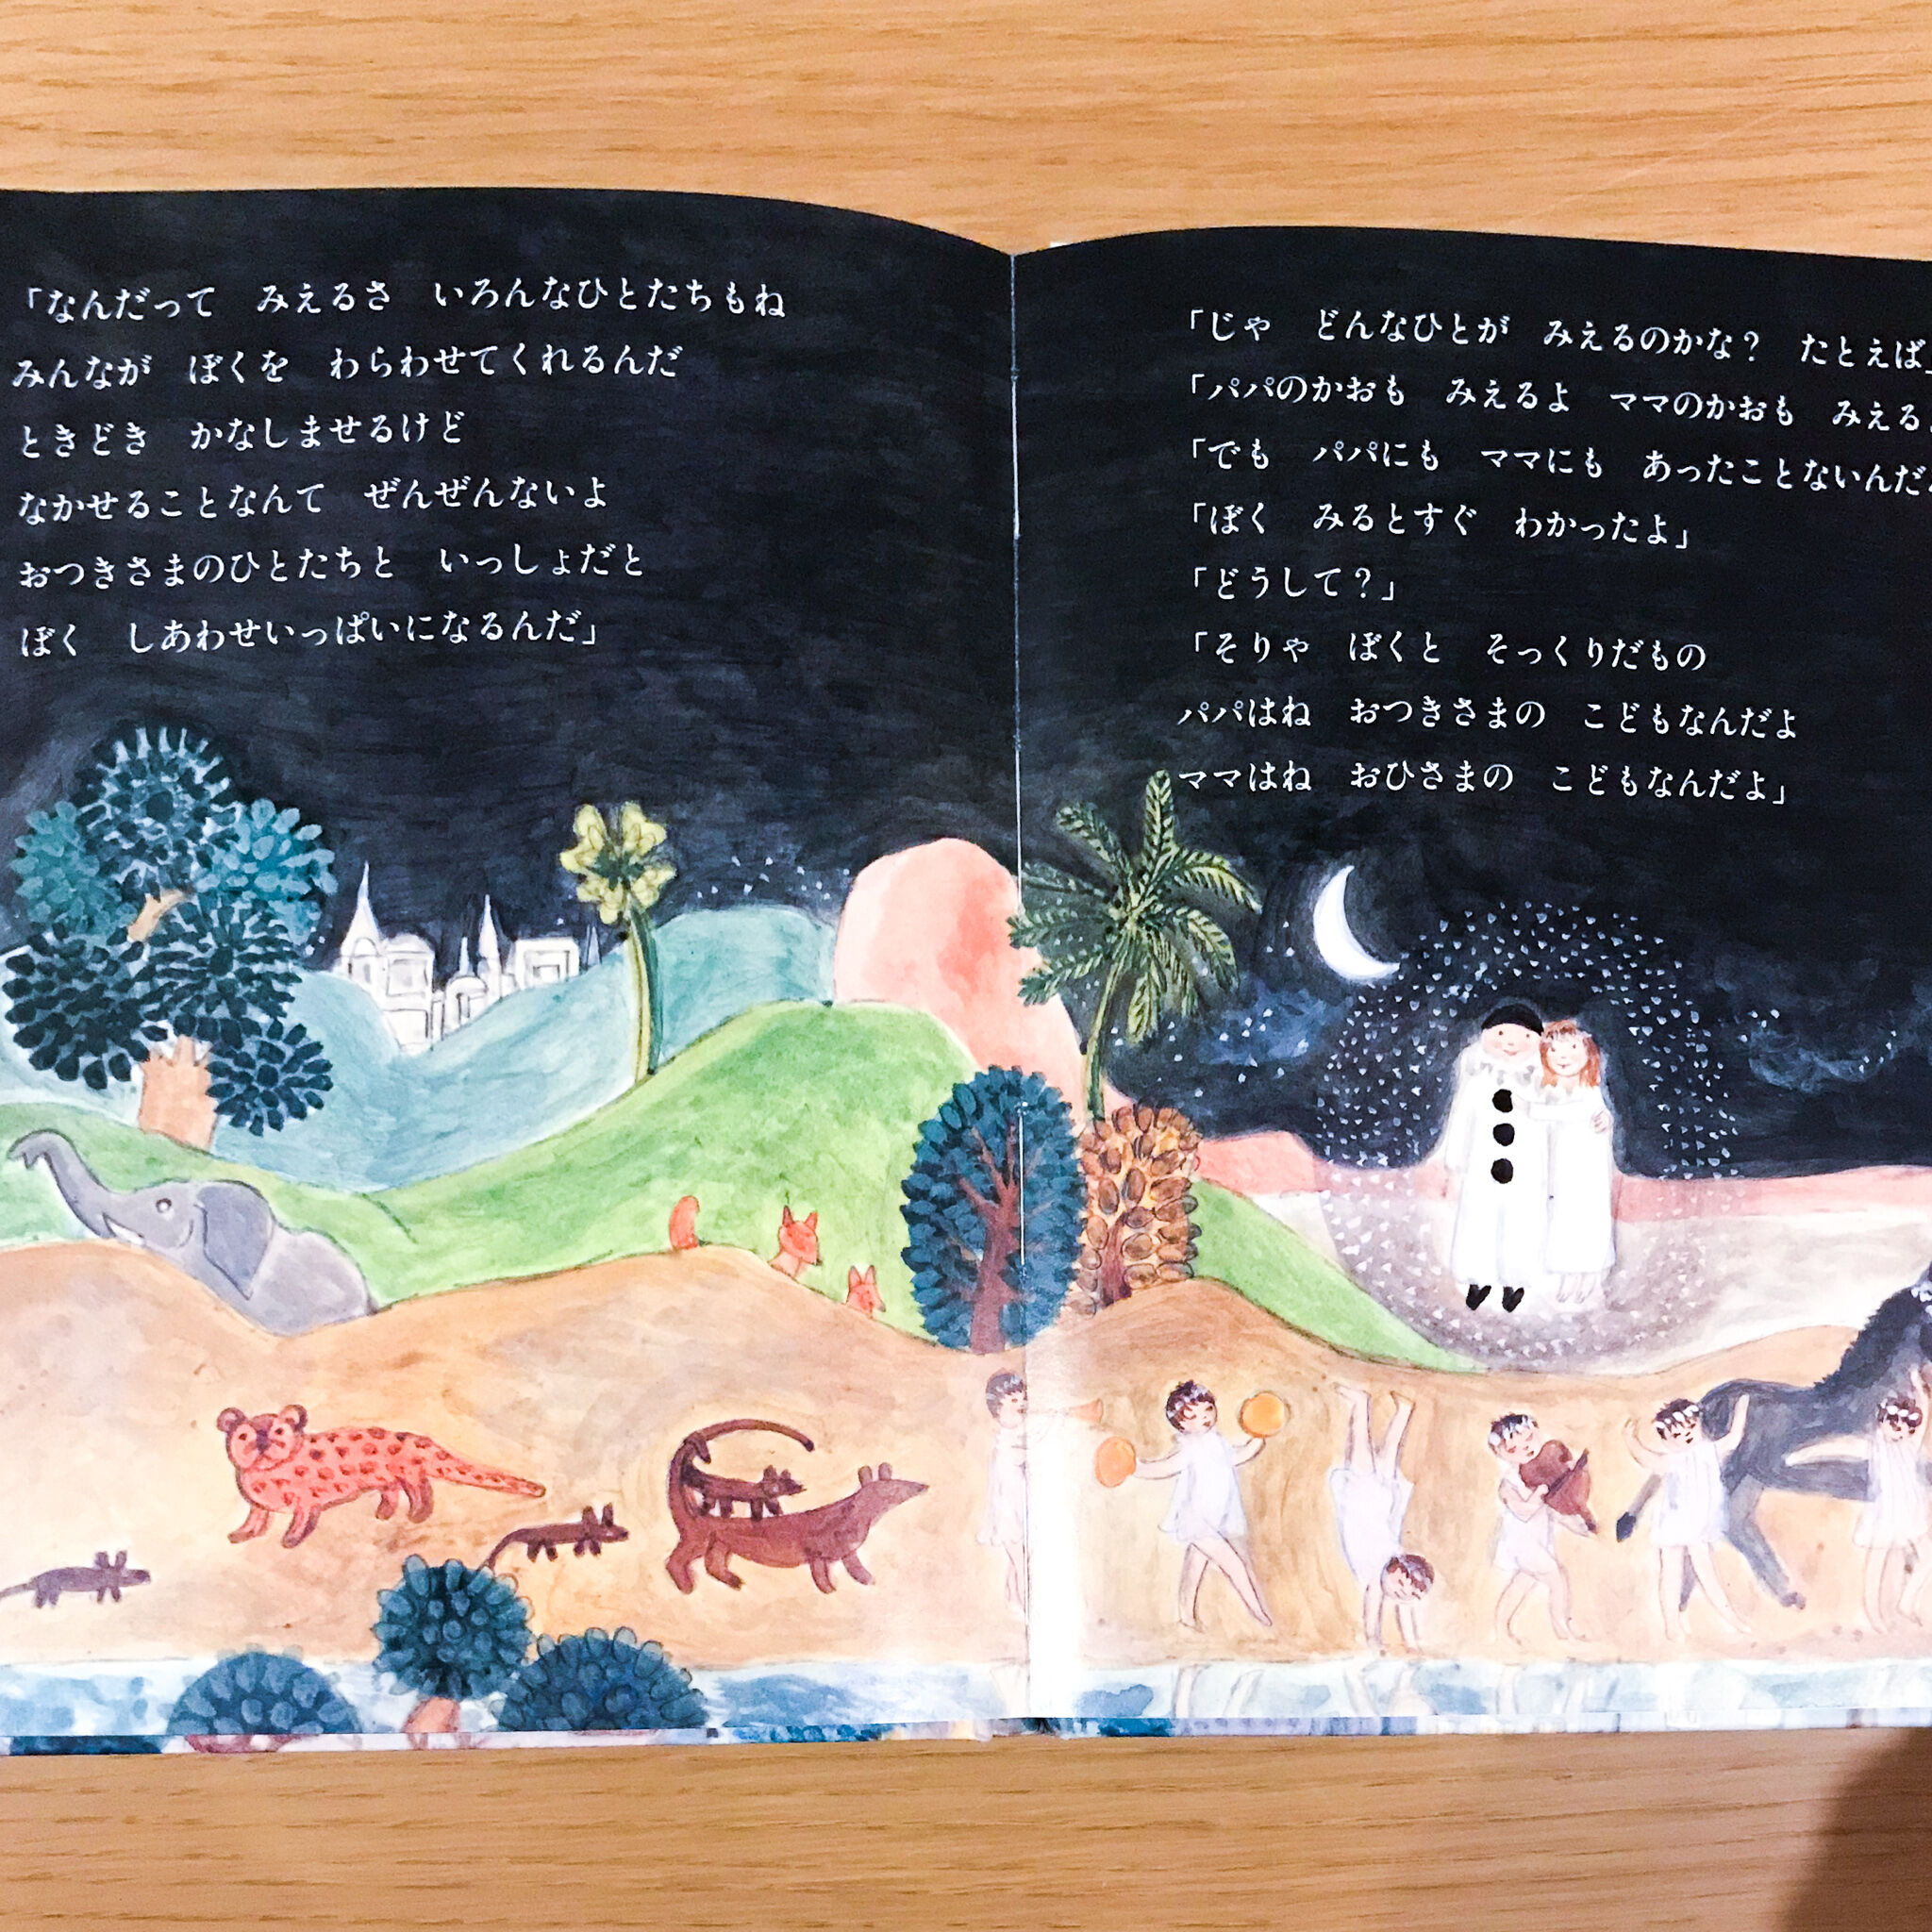 「なんだって　みえるさ　いろんなひとたちもね
みんなが　ぼくを　わらわせてくれるんだ
ときどき　かなしませるけど
なかせることなんて　ぜんぜんないよ
おつきさまのひとたちと　いっしょだと
ぼく　しあわせいっぱいになるんだ」
「じゃ　どんなひとが　みえるのかな？　たとえば」
「パパのかおも　みえるよ　ママのかおも　みえる
「でも　パパにも　ママにも　あったことないんだ
「ぼく　みるとすぐ　わかったよ」
「どうして？」
「そりゃ　ぼくと　そっくりだもの
パパはね　おつきさまの　こどもなんだよ
ママはね　おひさまの　こどもなんだよ」